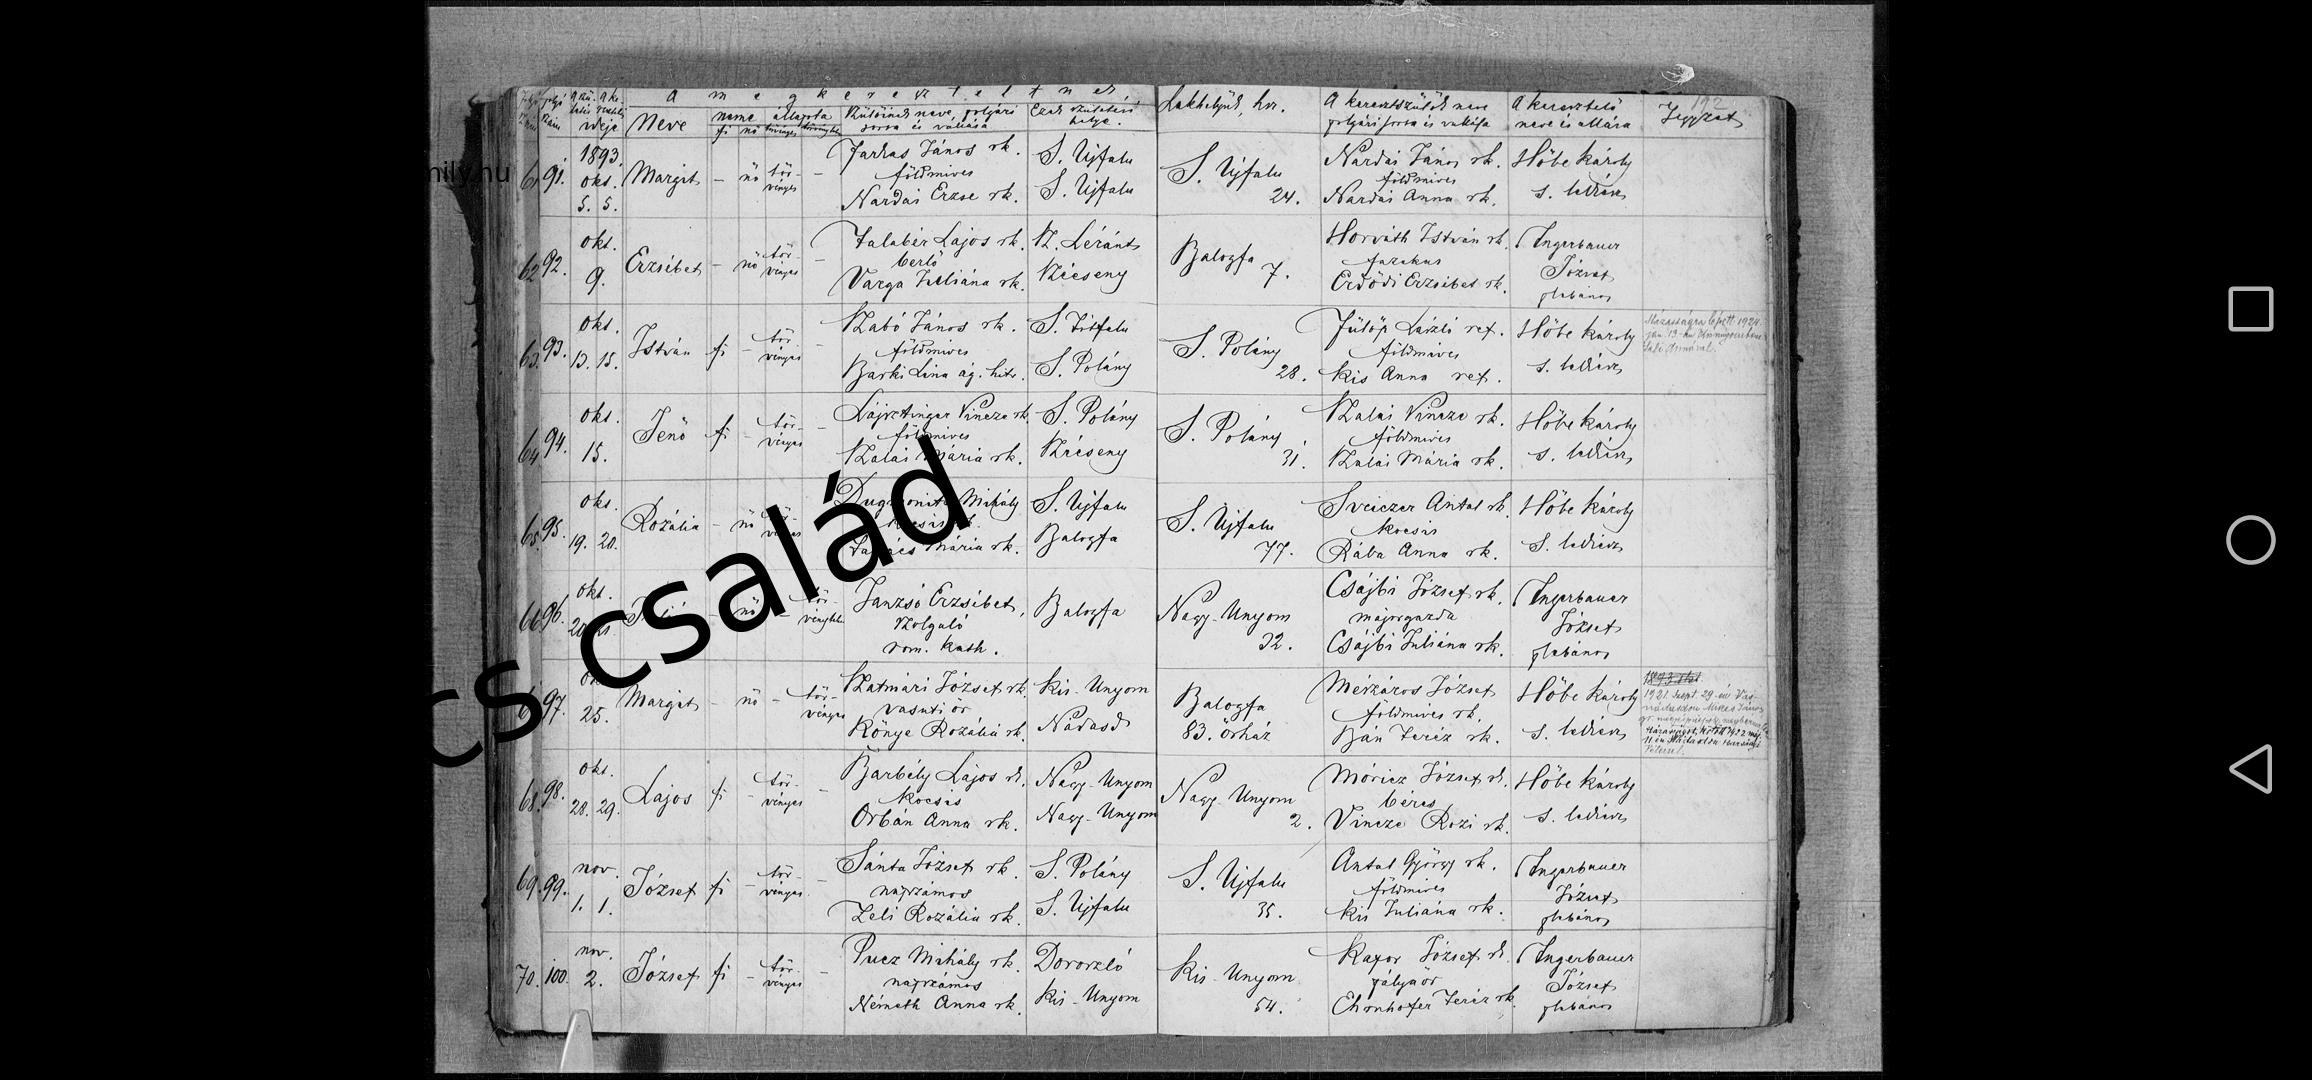 192
A megkereszteltnek
Neve
neme
állapota
fi nő törvényes
Szülőinek neve, polgári
sorsa és vallása
Ezek születési
helye.
Lakhelyük, hsz.
A keresztszülők neve
polgári sorsa és vallása
A keresztelő
neve és állása
Jegyzet
ideje
mily.hu
61 91. 1893. okt. 5. 5. Margit – nő tör-
vényes –
Farkas János rk.
földmives
Nardai Erzse rk.
S. Újfalu
S. Újfalu
S. Újfalu
24.
Nardai János rk.
földmives
Nardai Anna rk.
Hőbe Károly
s. lelkész
62 92. okt. 9. Erzsébet – nő tör-
vényes –
Talabér Lajos rk.
bérlő
Varga Julliána rk.
K. Léránt
Kécseny
Balogfa
7.
Horváth István rk.
fazekas
Erdődi Erzsébet rk.
Ingerbauer
József
plébános
63. 93. okt. 13. 15. István fi – tör-
vényes –
Szabó János rk.
földmives
Barki Lina ág. hitv.
S. Tótfalu
S. Polány
S. Polány
28.
Fülöp László ref.
földmives
Kis Anna ref.
Hőbe Károly
s. lelkész
Házasságra lépett 1924.
64 94. okt. 15. Jenő fi – tör-
vényes –
Vincze rk.
földmives
Szalai Mária rk.
S. Polány
Kécseny
S. Polány
31.
Szalai Vincze rk.
földmives
Szalai Mária rk.
Hőbe Károly
s. lelkész
65. 95. okt. 19. 20. Rozália – nő
Mihály
Mária rk.
S. Újfalu
Balogfa
S. Újfalu
77.
Sveiczer Antal rk.
kocsis
Rába Anna rk.
Hőbe Károly
s. lelkész
66 96. okt. nő
Janzsó Erzsébet,
szolgáló
rom. kath.
Balogfa
Nagy-Unyom
32.
Csájbi József rk.
majorgazda
Csájbi Juliána rk.
Ingerbauer
József
plébános
97. 25. Margit – nő – tör-
vényes
Szatmári József rk.
vasuti őr
Könye Rozália rk.
Kis-Unyom
Nádasd
Balogfa
83. őrház
Mészáros József
földmives rk.
Bán Teréz rk.
Hőbe Károly
s. lelkész
1921. szept. 29-én
68. 98. okt. 28. 29. Lajos fi – tör-
vényes –
Barbély Lajos rk.
kocsis
Orbán Anna rk.
Nagy-Unyom
Nagy-Unyom
Nagy-Unyom
2.
Móricz József rk.
béres
Vincze Rozi rk.
Hőbe Károly
s. lelkész
69. 99. nov. 1. 1. József fi – tör-
vényes –
Sánta József rk.
napszámos
Zeli Rozália rk.
S. Polány
S. Újfalu
S. Újfalu
35.
Antal György rk.
földmives
Kis Juliána rk.
Ingerbauer
József
plébános
70. 100. nov. 2. József fi – tör-
vényes –
Pucz Mihály rk.
napszámos
Németh Anna rk.
Dorozló
Kis-Unyom
Kis-Unyom
54.
József rk.
pályaőr
Teréz rk.
Ingerbauer
József
plébános
cs család